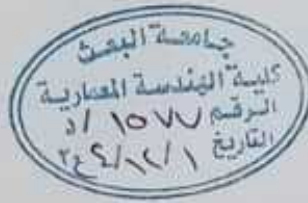 جامعة البعث
كلية الهندسة المعمارية
الرقم ١٥٧٧ / د
التاريخ ١ / ١٢ /